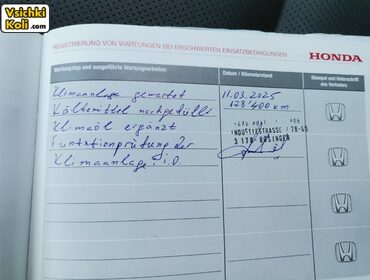 Vsichki
Koli.com
REGISTRIERUNG VON WARTUNGEN BEI ERSCHWERTEN EINSATZBEDINGUNGEN
HONDA
Wartungstyp und ausgeführte Wartungsarbeiten
Datum / Kilometerstand
Stempel und Unterschrift des Vertreters
Klimaanlage gewartet
11.03.2025
Kältemittel nachgefüllt
178'400 km
Klimaöl ergänzt
INDUSTRIESTRASSE
Funktionprüfung der
3178 BÖSINGEN
Klimaanlage i.O